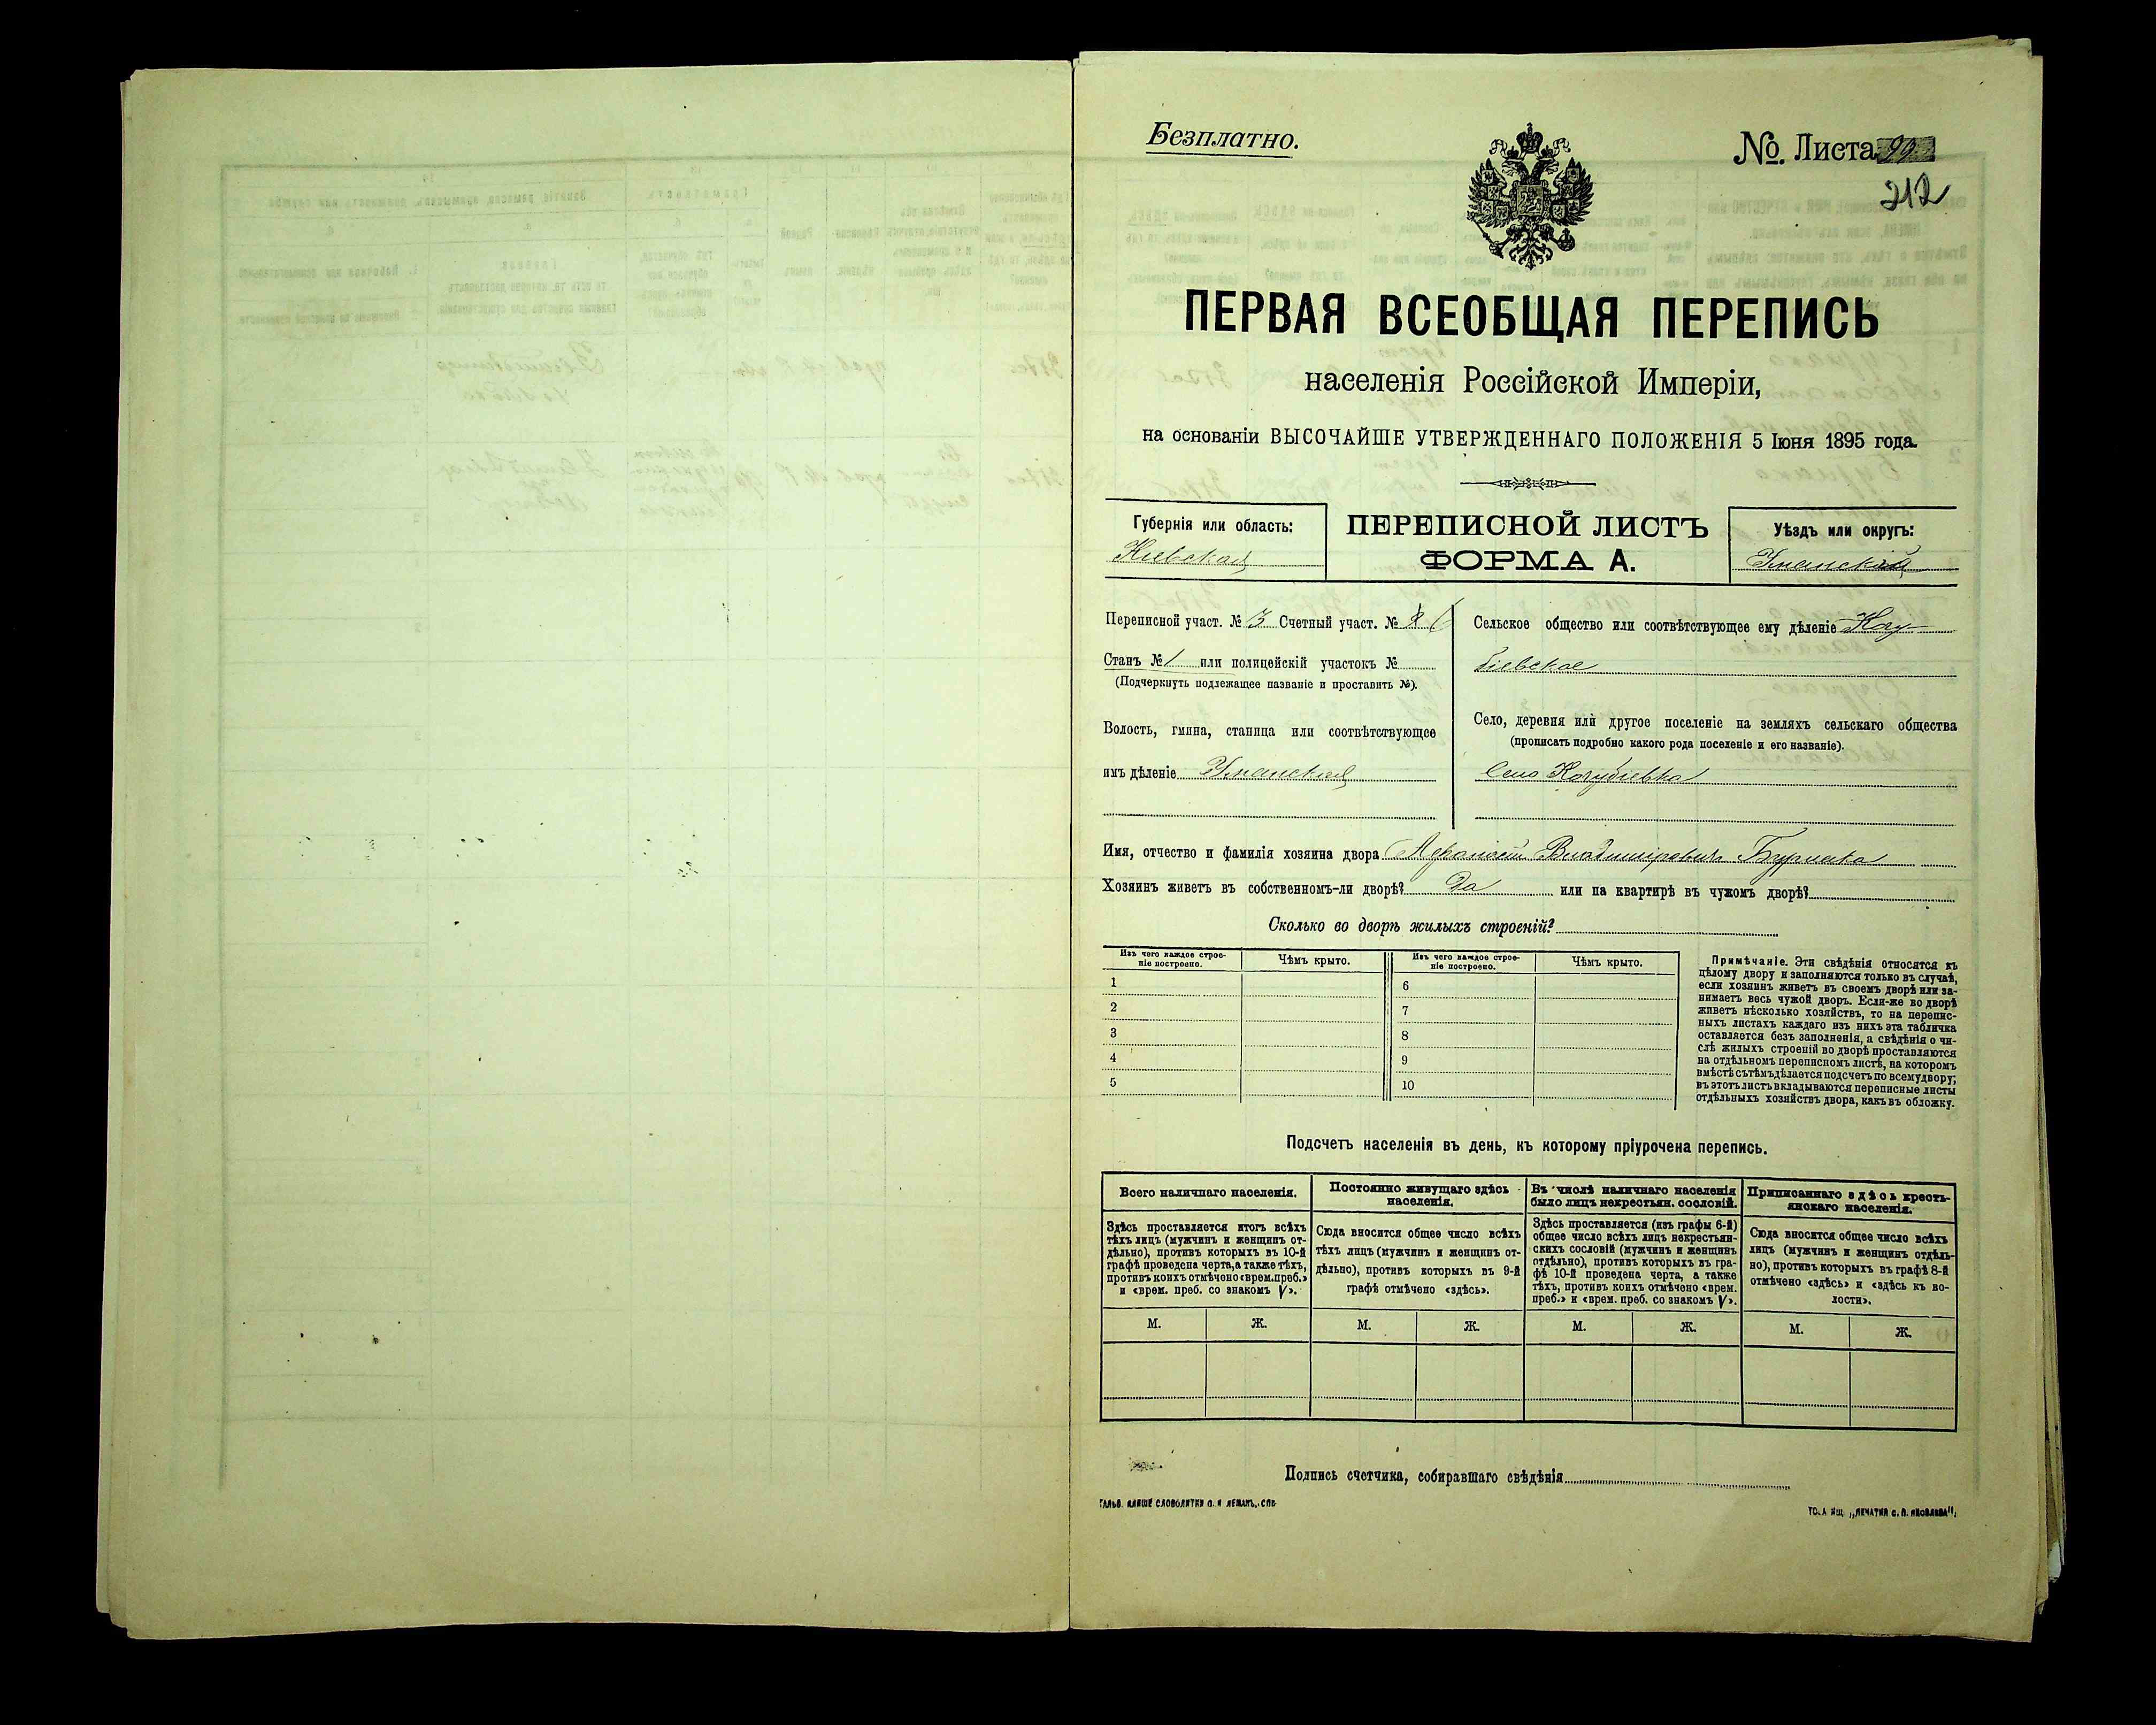 Безплатно.
№. Листа 99
212
ПЕРВАЯ ВСЕОБЩАЯ ПЕРЕПИСЬ
населенія Россійской Имперіи,
на основаніи ВЫСОЧАЙШЕ УТВЕРЖДЕННАГО ПОЛОЖЕНІЯ 5 Іюня 1895 года.
Губернія или область:
Кіевская
ПЕРЕПИСНОЙ ЛИСТЪ
ФОРМА А.
Уѣздъ или округъ:
Уманскій
Переписной участ. № 13 Счетный участ. №
Станъ № 1 или полицейскій участокъ №
(Подчеркнуть подлежащее названіе и проставить №).
Волость, гмина, станица или соотвѣтствующее
имъ дѣленіе Уманская
Сельское общество или соотвѣтствующее ему дѣленіе Кочу-
біевское
Село, деревня или другое поселеніе на земляхъ сельскаго общества
(прописать подробно какого рода поселеніе и его названіе).
Село Кочубіевка
Имя, отчество и фамилія хозяина двора Афанасій Владиміровичъ Бурлака
Хозяинъ живетъ въ собственномъ-ли дворѣ? Да или на квартирѣ въ чужомъ дворѣ?
Сколько во дворѣ жилыхъ строеній?
Изъ чего каждое строе-
ніе построено.
Чѣмъ крыто.
Изъ чего каждое строе-
ніе построено.
Чѣмъ крыто.
1
2
3
4
5
6
7
8
9
10
Примѣчаніе. Эти свѣдѣнія относятся къ
цѣлому двору и заполняются только въ случаѣ,
если хозяинъ живетъ въ своемъ дворѣ или за-
нимаетъ весь чужой дворъ. Если-же во дворѣ
живетъ нѣсколько хозяйствъ, то на перепис-
ныхъ листахъ каждаго изъ нихъ эта табличка
оставляется безъ заполненія, а свѣдѣнія о чи-
слѣ жилыхъ строеній во дворѣ проставляются
на отдѣльномъ переписномъ листѣ, на которомъ
вмѣстѣ съ тѣмъ дѣлается подсчетъ по всему двору;
въ этотъ листъ вкладываются переписные листы
отдѣльныхъ хозяйствъ двора, какъ въ обложку.
Подсчетъ населенія въ день, къ которому пріурочена перепись.
Всего наличнаго населенія.
Здѣсь проставляется итогъ всѣхъ
тѣхъ лицъ (мужчинъ и женщинъ от-
дѣльно), противъ которыхъ въ 10-й
графѣ проведена черта, а также тѣхъ,
противъ коихъ отмѣчено «врем. преб.»
и «врем. преб. со знакомъ V».
Постоянно живущаго здѣсь
населенія.
Сюда вносится общее число всѣхъ
тѣхъ лицъ (мужчинъ и женщинъ от-
дѣльно), противъ которыхъ въ 9-й
графѣ отмѣчено «здѣсь».
Въ числѣ наличнаго населенія
было лицъ некрестьян. сословій.
Здѣсь проставляется (изъ графы 6-й)
общее число всѣхъ лицъ некрестьян-
скихъ сословій (мужчинъ и женщинъ
отдѣльно), противъ которыхъ въ гра-
фѣ 10-й проведена черта, а также
тѣхъ, противъ коихъ отмѣчено «врем.
преб.» и «врем. преб. со знакомъ V».
Приписаннаго здѣсь кресть-
янскаго населенія.
Сюда вносится общее число всѣхъ
лицъ (мужчинъ и женщинъ отдѣль-
но), противъ которыхъ въ графѣ 8-й
отмѣчено «здѣсь» и «здѣсь къ во-
лости».
М. Ж. М. Ж. М. Ж. М. Ж.
Подпись счетчика, собиравшаго свѣдѣнія
ГАЛЬВ. КЛИШЕ СЛОВОЛИТНИ О. И ЛЕМАНЪ, СПБ
„ПЕЧАТНЯ С. П. ЯКОВЛЕВА"